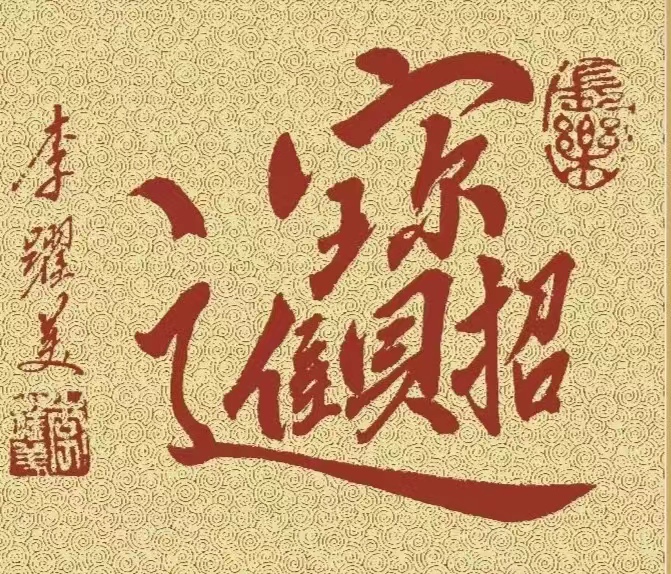 招財進寶
李躍美